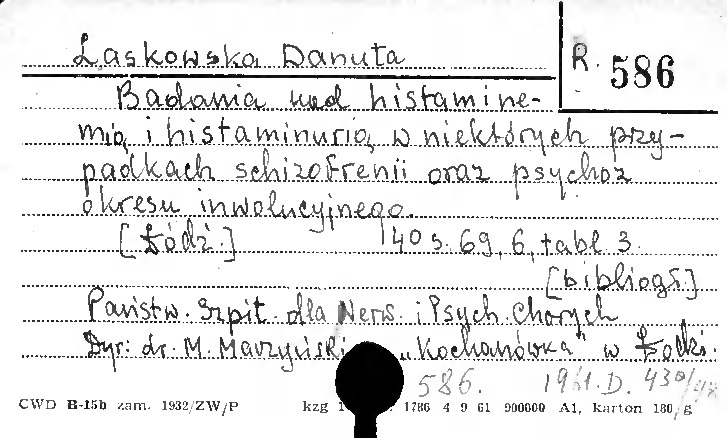 Laskowska Danuta
R. 586
Badania nad histamine-
mią i histaminurią w niektórych przy-
padkach schizofrenii oraz psychoz
okresu inwolucyjnego.
[Łódź.] 140 s. 69, 6, tabl 3.
[bibliogr]
Państw. Szpit. dla Nerw. i Psych. Chorych
Dyr: dr. M. Marzyński „Kochanówka" w Łodzi.
586. 1961. D. 430/48
CWD B-15b zam. 1932/ZW/P kzg 1786 4 9 61 900000 A1, karton 180 g